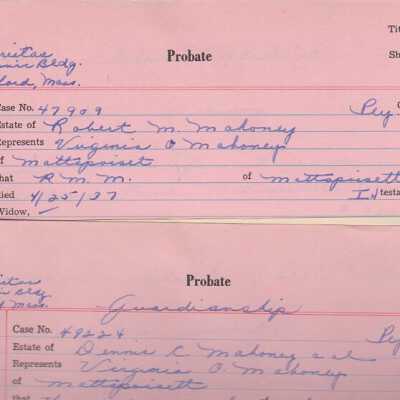 Tit
Probate
Bldg.
Sh
ford, Mass.
Case No. 47909
Estate of Robert M. Mahoney
Represents Virginia O Mahoney
of Mattapoisett
that R. M. M. of Mattapoisett
died 4/25/37 In testa
Widow,
Probate
Bldg
Mass.
Guardianship
Case No. 49224
Estate of Dennis C. Mahoney et al
Represents Virginia O. Mahoney
of Mattapoisett
that